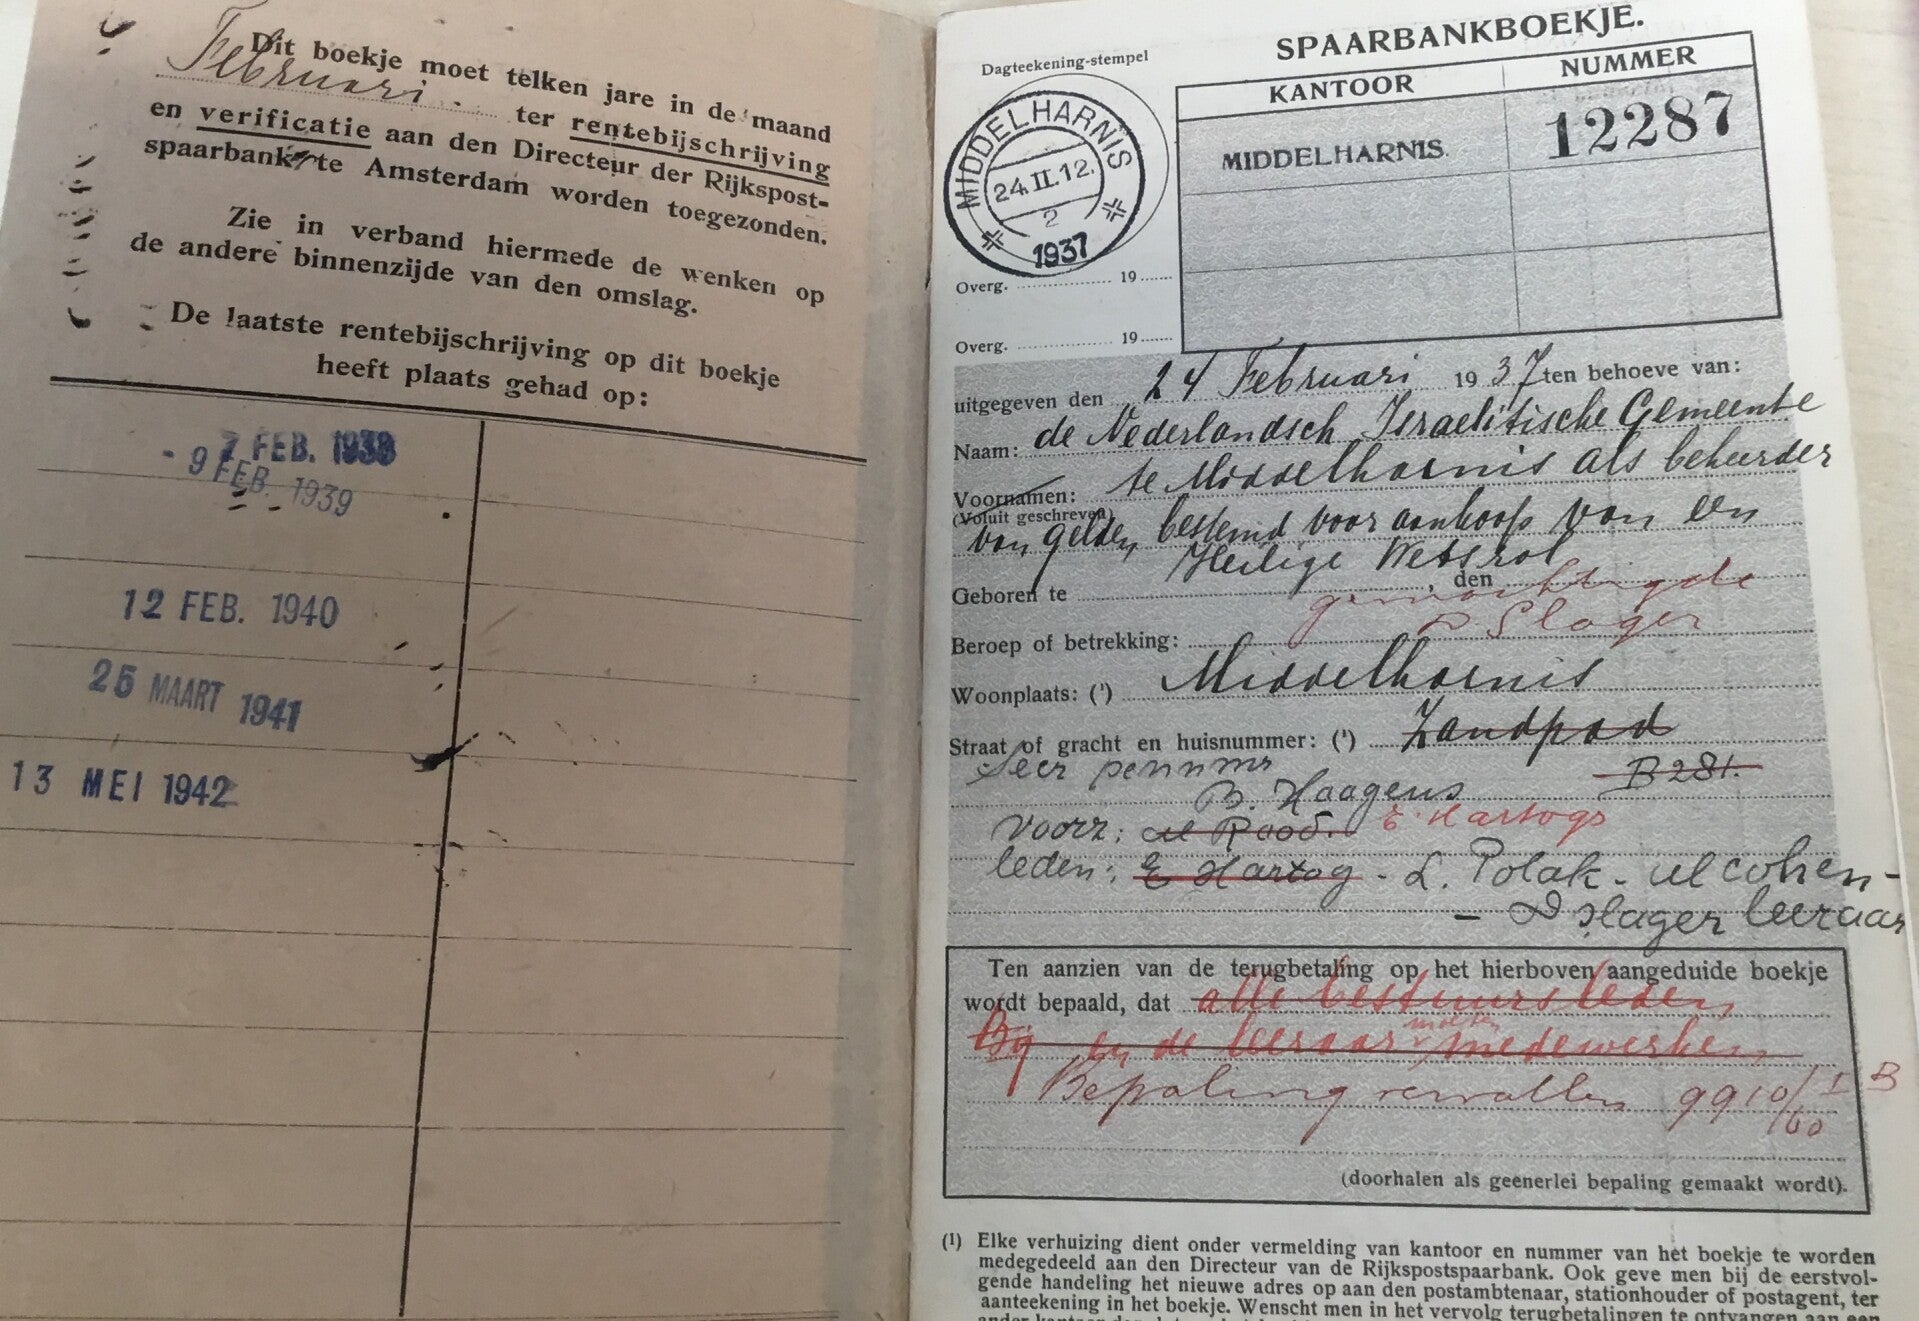 Dit boekje moet telken jare in de maand
Februari . ter rentebijschrijving
en verificatie aan den Directeur der Rijkspost-
spaarbank te Amsterdam worden toegezonden.
Zie in verband hiermede de wenken op
de andere binnenzijde van den omslag.
De laatste rentebijschrijving op dit boekje
heeft plaats gehad op:
7 FEB. 1938
- 9 FEB. 1939
12 FEB. 1940
25 MAART 1941
13 MEI 1942
SPAARBANKBOEKJE.
Dagteekening-stempel
KANTOOR NUMMER
MIDDELHARNIS
24.II.12.
2
1937
MIDDELHARNIS. 12287
Overg. 19
Overg. 19
uitgegeven den 24 Februari 1937 ten behoeve van:
Naam: de Nederlandsch Israelitische Gemeente
Voornamen: te Middelharnis als beheerder
(Voluit geschreven)
van gelden, bestemd voor aankoop van een
Heilige Wetsrol
Geboren te , den
gemachtigde
D Slager
Beroep of betrekking:
Woonplaats: (¹) Middelharnis
Straat of gracht en huisnummer: (¹) Zandpad
B 281.
Secr pennmr
B. Haagens
voorz: M Rood. E. Hartogs
leden: E Hartog - L. Polak - M Cohen -
- D Slager leeraar
Ten aanzien van de terugbetaling op het hierboven aangeduide boekje
wordt bepaald, dat alle bestuursleden
en de leeraar moeten medewerken
Bepaling vervallen 9910/60 I B
(doorhalen als geenerlei bepaling gemaakt wordt).
(1) Elke verhuizing dient onder vermelding van kantoor en nummer van het boekje te worden
medegedeeld aan den Directeur van de Rijkspostspaarbank. Ook geve men bij de eerstvol-
gende handeling het nieuwe adres op aan den postambtenaar, stationhouder of postagent, ter
aanteekening in het boekje. Wenscht men in het vervolg terugbetalingen te ontvangen aan een